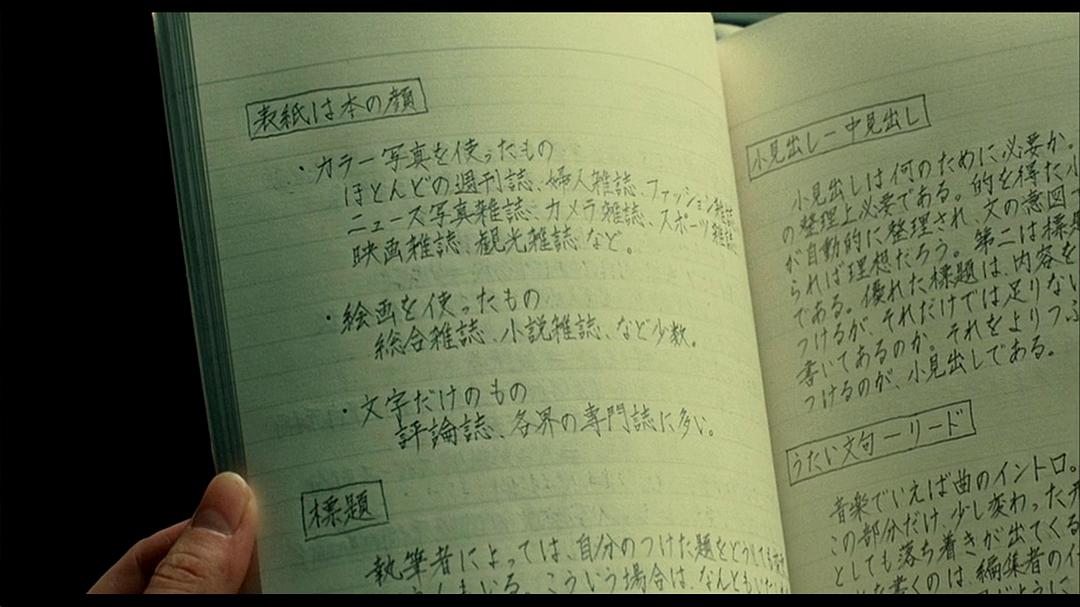 表紙は本の顔
・カラー写真を使ったもの
ほとんどの週刊誌、婦人雑誌、ファッション雑誌
ニュース写真雑誌、カメラ雑誌、スポーツ雑誌
映画雑誌、観光雑誌など。
・絵画を使ったもの
総合雑誌、小説雑誌、など少数。
・文字だけのもの
評論誌、各界の専門誌に多い。
標題
執筆者によっては、自分のつけた題をどうしても
もいる。こういう場合は、なんともいた
小見出し－中見出し
小見出しは何のために必要か。
の整理上必要である。的を得た小
が自動的に整理され、文の意図
られば理想だろう。第二は標題
である。優れた標題は、内容を
つけるが、それだけでは足りない
書いてあるのか。それをよりつ
つけるのが、小見出しである。
うたい文句－リード
音楽でいえば曲のイントロ。
この部分だけ、少し変わった
としても落ち着きが出てくる
を書くのは、編集者の